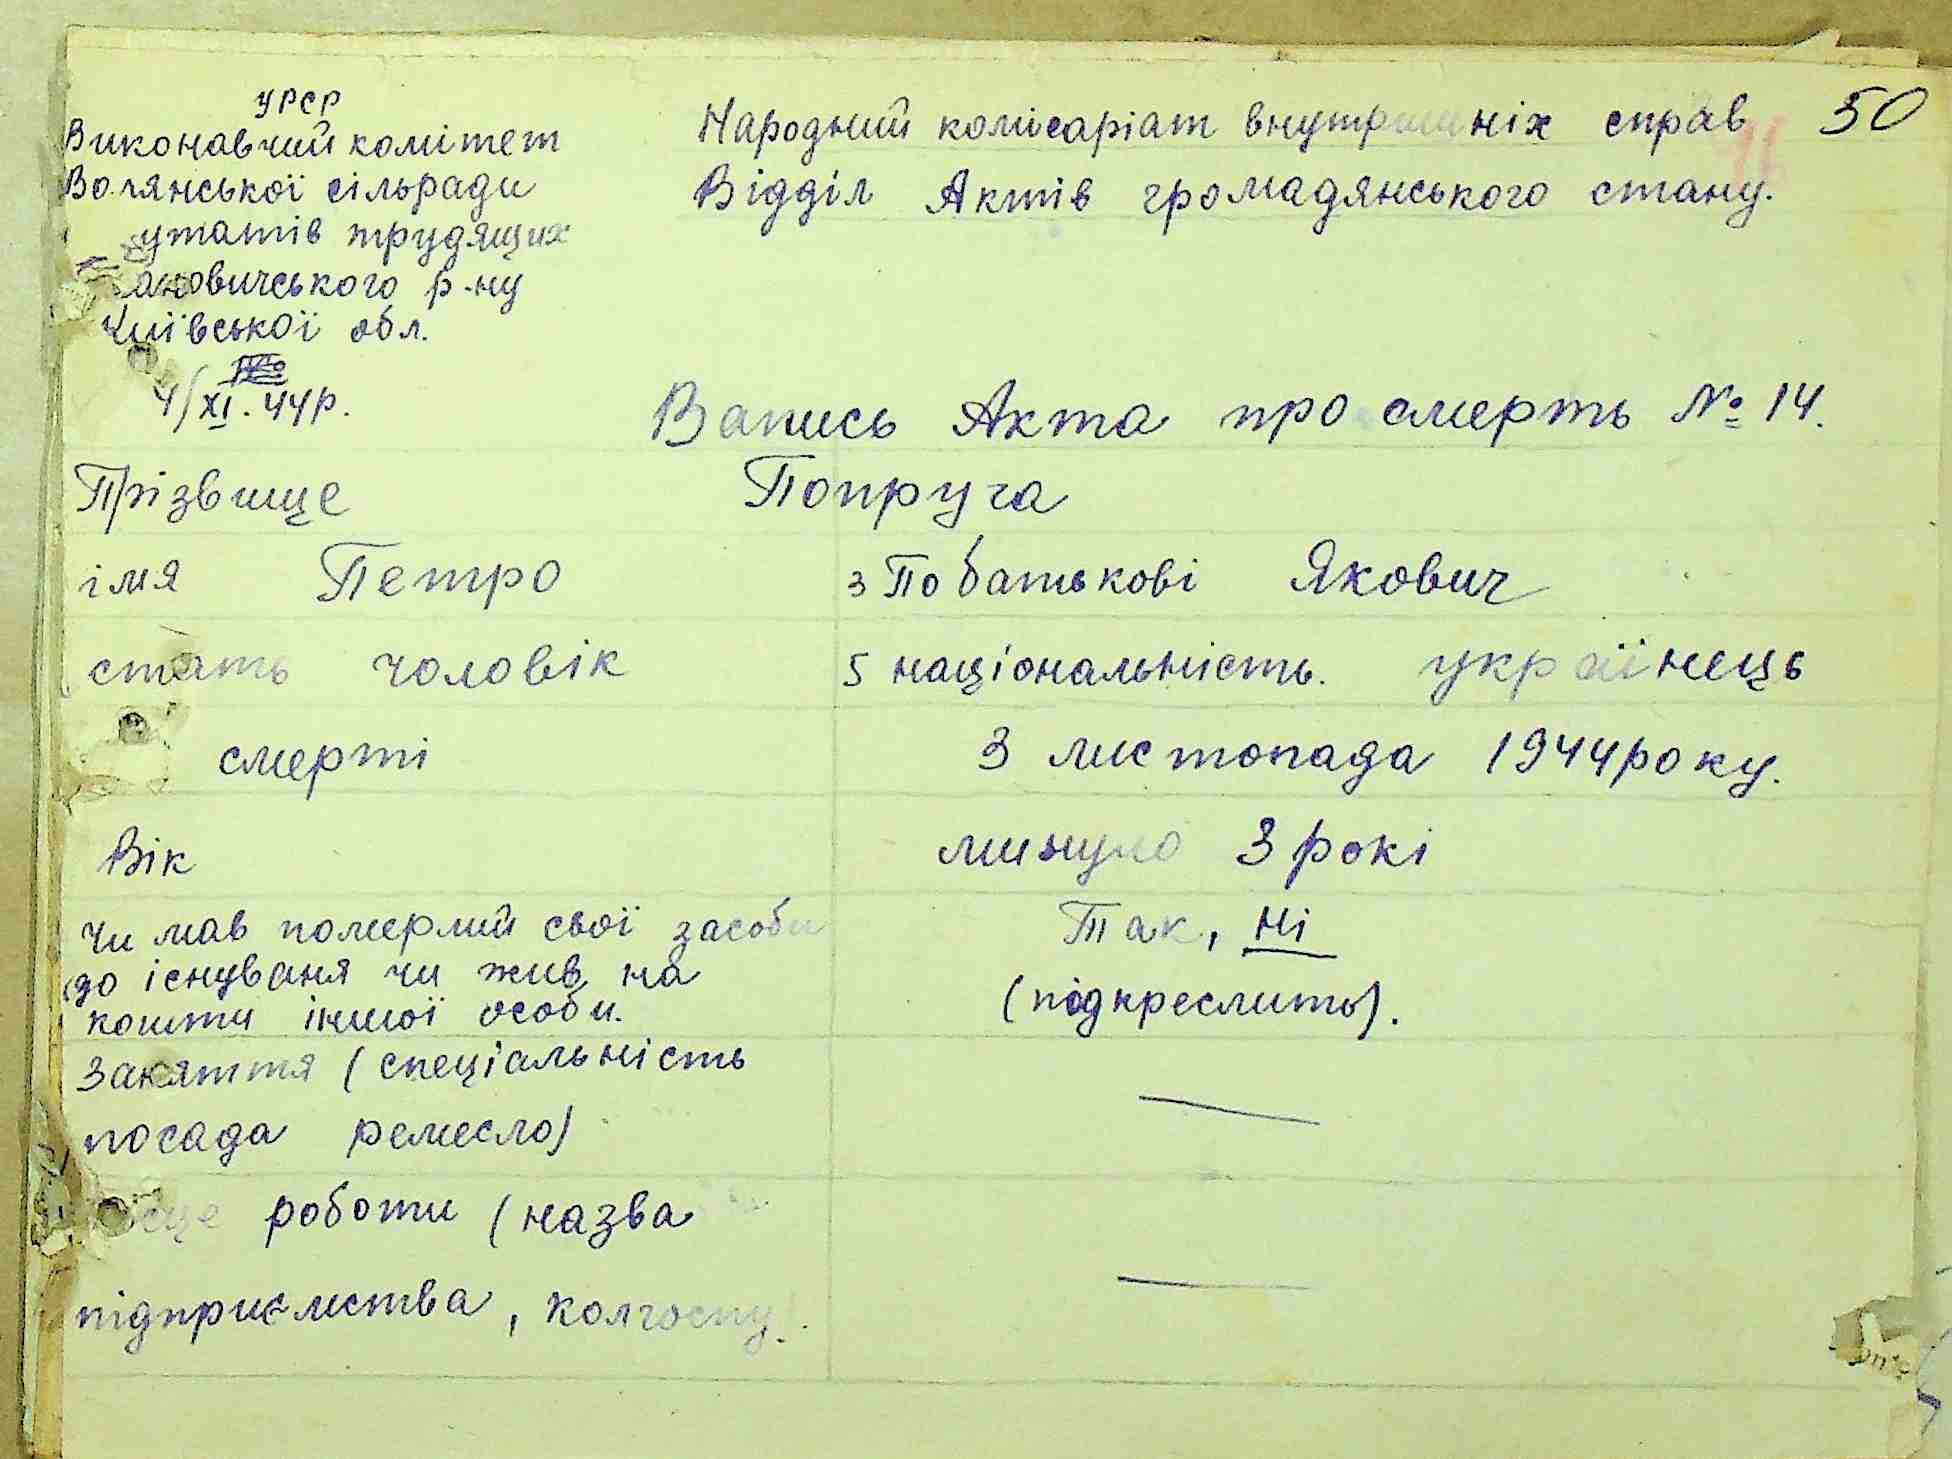 УРСР
Виконавчий комітет
Вочянської сільради
утатів трудящих
ановичського р-ну
Київської обл.
4/XI.44р.
Народний комісаріат внутришніх справ 50
Відділ Актів громадянського стану.
Запись Акта про смерть № 14.
Прізвище Попруга
імя Петро 3 По батькові Якович
стать чоловік 5 національність. українець
смерті 3 листопада 1944року.
Вік минуло 3 рокі
Чи мав померлий свої засоби Так, ні
до існуваня чи жив на
кошти іншої особи. (підкреслить).
Заняття (спеціальність
посада ремесло)
місце роботи (назва
підприємства, колгоспу).